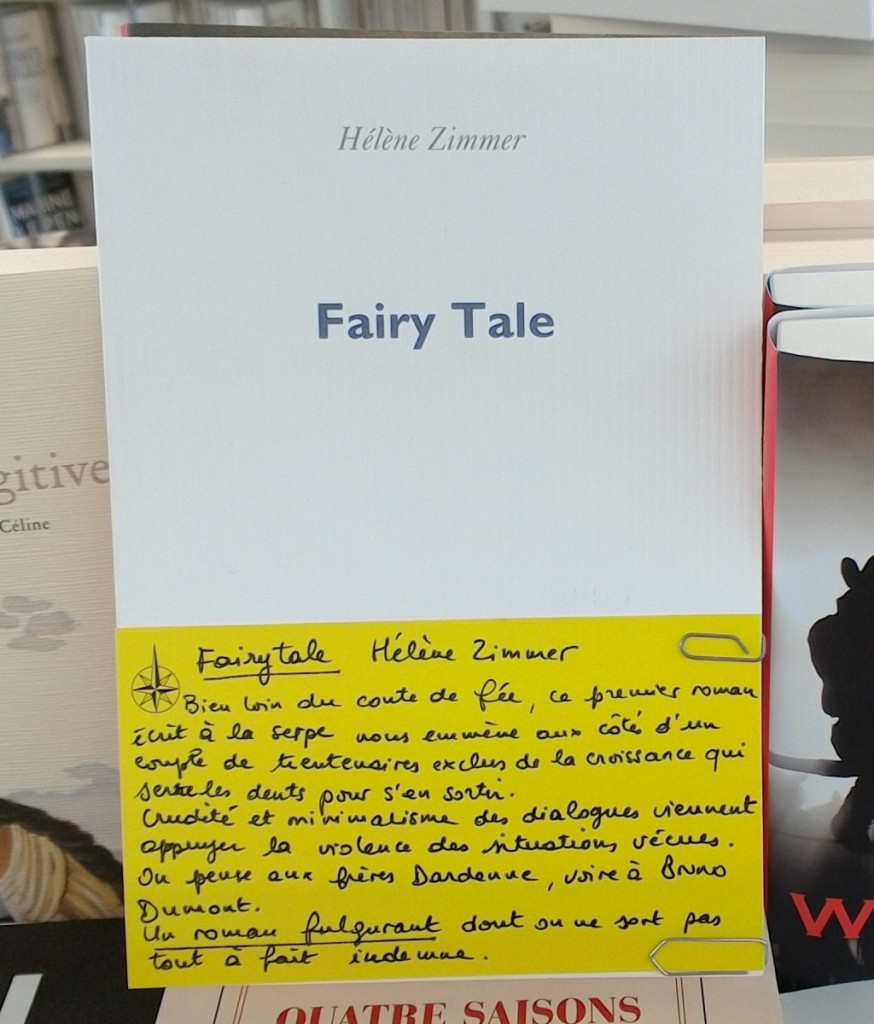 Hélène Zimmer
Fairy Tale
gitive
Céline
Fairytale Hélène Zimmer
Bien loin du conte de fée, ce premier roman
écrit à la serpe nous emmène aux côtés d'un
couple de trentenaires exclus de la croissance qui
serre les dents pour s'en sortir.
Crudité et minimalisme des dialogues viennent
appuyer la violence des situations vécues.
On pense aux frères Dardenne, voire à Bruno
Dumont.
Un roman fulgurant dont on ne sort pas
tout à fait indemne.
W
QUATRE SAISONS